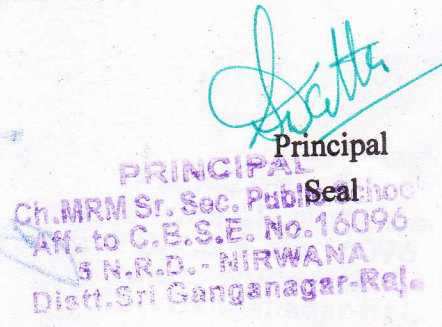 Swatta
Principal
Seal
PRINCIPAL
Ch.MRM Sr. Sec. Public School
Aff. to C.B.S.E. No.16096
5 N.R.D.- NIRWANA
Distt.Sri Ganganagar-Raj.